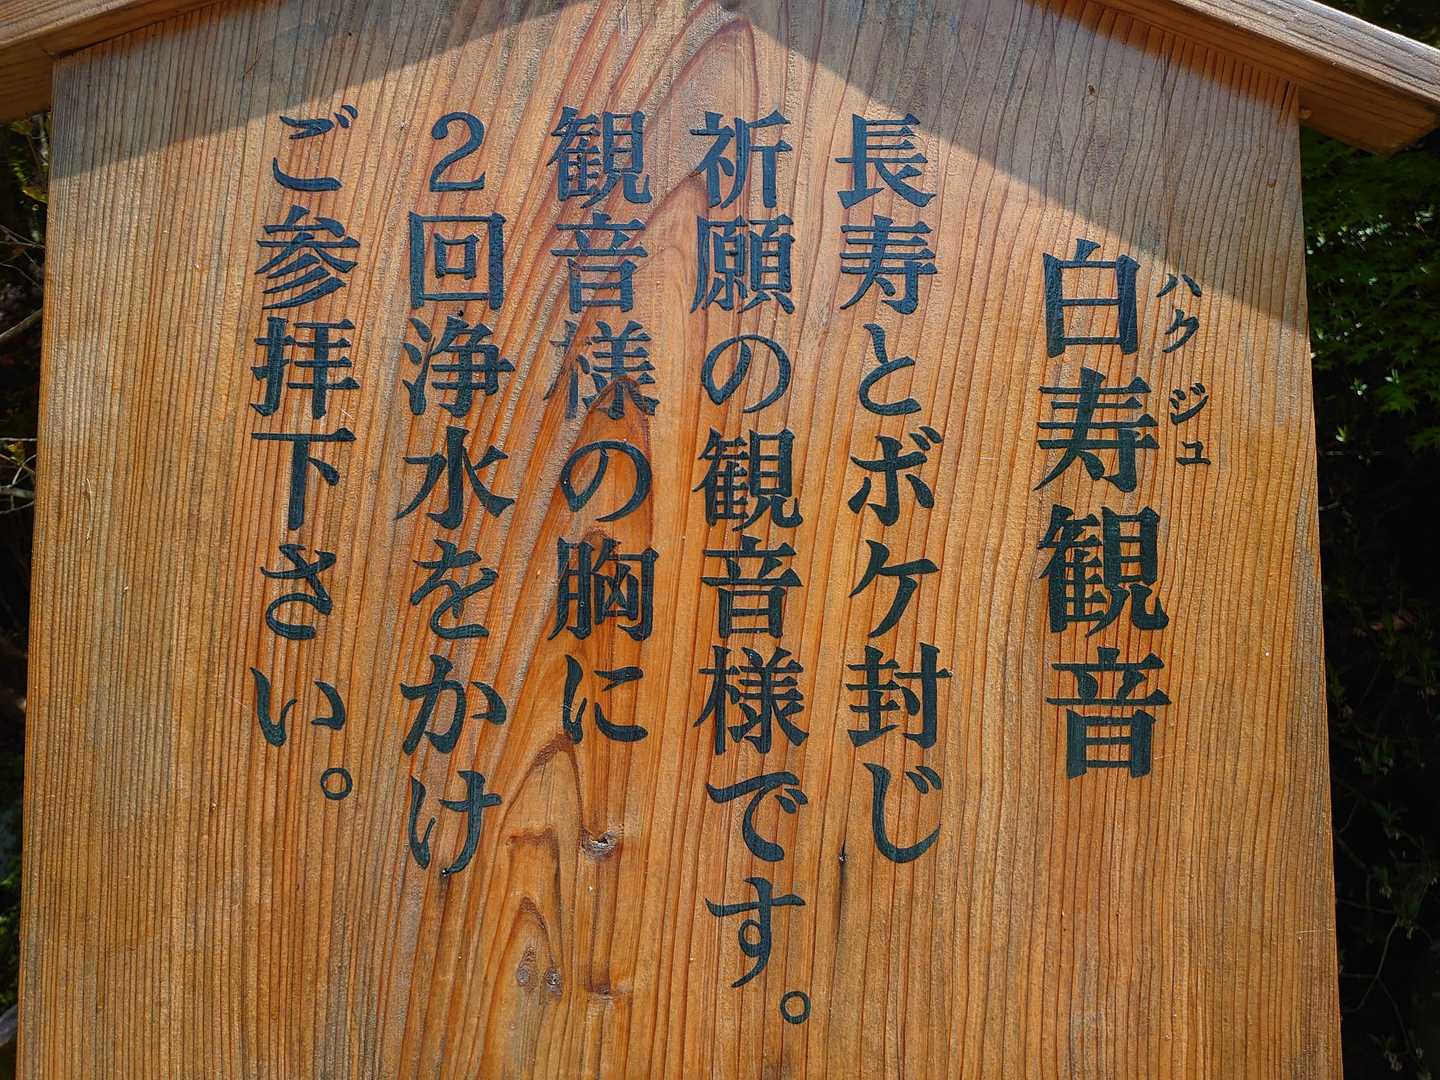 白寿観音
ハクジュ
長寿とボケ封じ
祈願の観音様です。
観音様の胸に
2回浄水をかけ
ご参拝下さい。